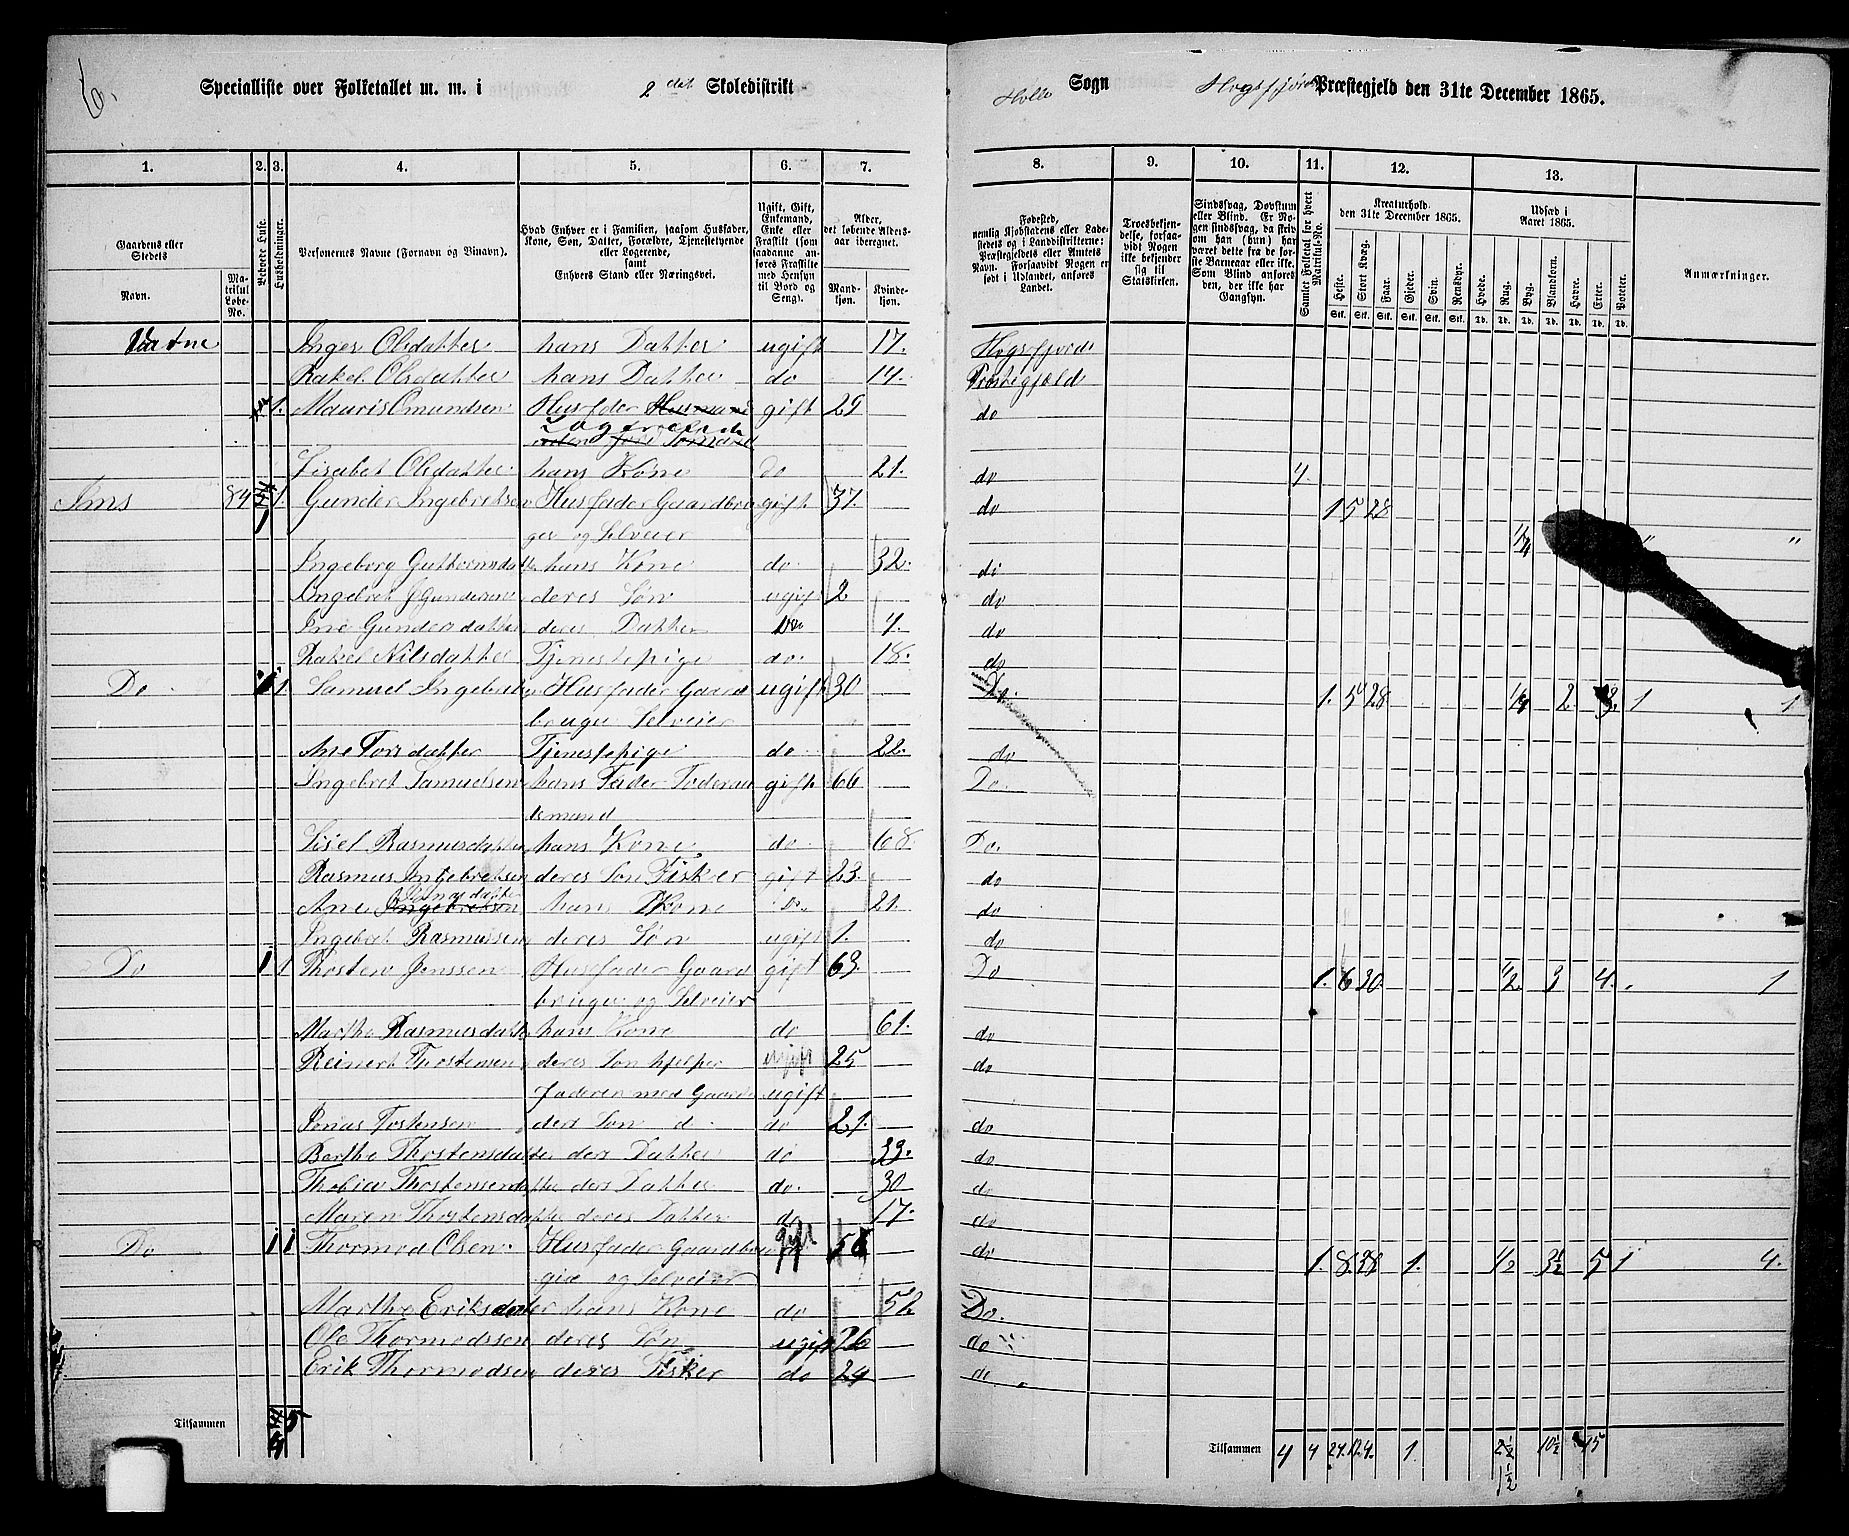 6.
Specialliste over Folketallet m. m. i 2det Skoledistrikt
Holle Sogn Høgsfjords Præstegjeld den 31te December 1865.
1. 2. 3. 4. 5. 6. 7.
8. 9. 10. 11. 12. 13.
Gaardens eller Stedets Navn.
Matrikul Løbe-No.
Bebyede Huse.
Husholdninger.
Personernes Navne (Fornavn og Binavn).
Hvad Enhver er i Familien, saasom Husfader, Kone, Søn, Datter, Forældre, Tjenestetyende eller Logerende, samt Enhvers Stand eller Næringsvei.
Ugift, Gift, Enkemand, Enke eller Fraskilt
Alder, det løbende Aldersaar iberegnet.
Mandkjøn.
Kvindekjøn.
Troesbekjendelse, forsaavidt Nogen ikke bekjender sig til Statskirken.
Samlet Folketal for hvert Matrikul-No.
Kreaturhold den 31te December 1865.
Heste. Stort Kvæg. Faar. Gjeder. Svin. Rensdyr.
Udsæd i Aaret 1865.
Hvede. Rug. Byg. Blandkorn. Havre. Erter. Poteter.
Anmærkninger.
Vatne Inger Olsdatter hans Datter ugift 17. Høgsfjords
Rakel Olsdatter hans Datter do 14. Præstegjæld
1. Mauris Omundsen Husfader Husmand gift 29 do
Logerende
Lisabet Olsdatter hans Kone do 21. do 7.
Ims 84 1. Gunder Ingebretsen Husfader Gaardbru gift 37. do 1 5 28
ger og Selveier 1/4 " "
Ingeborg Guttormsdatter hans Kone do 32. do
Ingebret Gundersen deres Søn ugift 2 do
Ine Gundersdatter deres Datter Do 4. do
Rakel Nilsdatter Tjenestepige do. 18. do
Do 1 1 Samuel Ingebretsen Husfader Gaard ugift 30 Do. 1. 5 28 1/4 2 3. 1 1
bruger Selveier
Ane Torsdatter Tjenestepige do 22. do
Ingebret Samuelsen hans Fader Føderaa gift. 66 Do.
dsmand
Lisel Rasmusdatter hans Kone do 68. Do.
Rasmus Ingebretsen deres Søn Fisker gift 23. do
Ane Ingebretsen hans Kone Do. 21. do
Ingebret Rasmussen deres Søn ugift 1. do
Do 1 1 Thosten Jonssen Husfader Gaard gift 63. Do 1. 6 30. 1/2. 3 4. 1
bruger og Selveier
Marthe Rasmusdatter hans Kone do 61. do
Reinert Thostensen deres Søn hjelper ugift 25 do
faderen med Gaarde ugift
Jonas Tostensen deres Søn d. do 21. do
Berthe Thostensdatter deres Datter do 33. do
Thobia Thostensendatter deres Datter do. 30 do
Maren Thostensdatter deres Datter do 17. do
Do 1 1 Thormod Olsen. Husfader Gaardbru gift 58 do 1. 8. 38 1. 1/2 3 1/2 5 1 4.
ger og Selveier
Marthe Eriksdatter hans Kone do 52 Do.
Ole Thormodssen deres Søn ugift 26 do
Erik Thormodsen deres Fisker do 24 do
Tilsammen 4 5
Tilsammen 4 4 24. 124. 1. 2 1/2 10 1/2 15